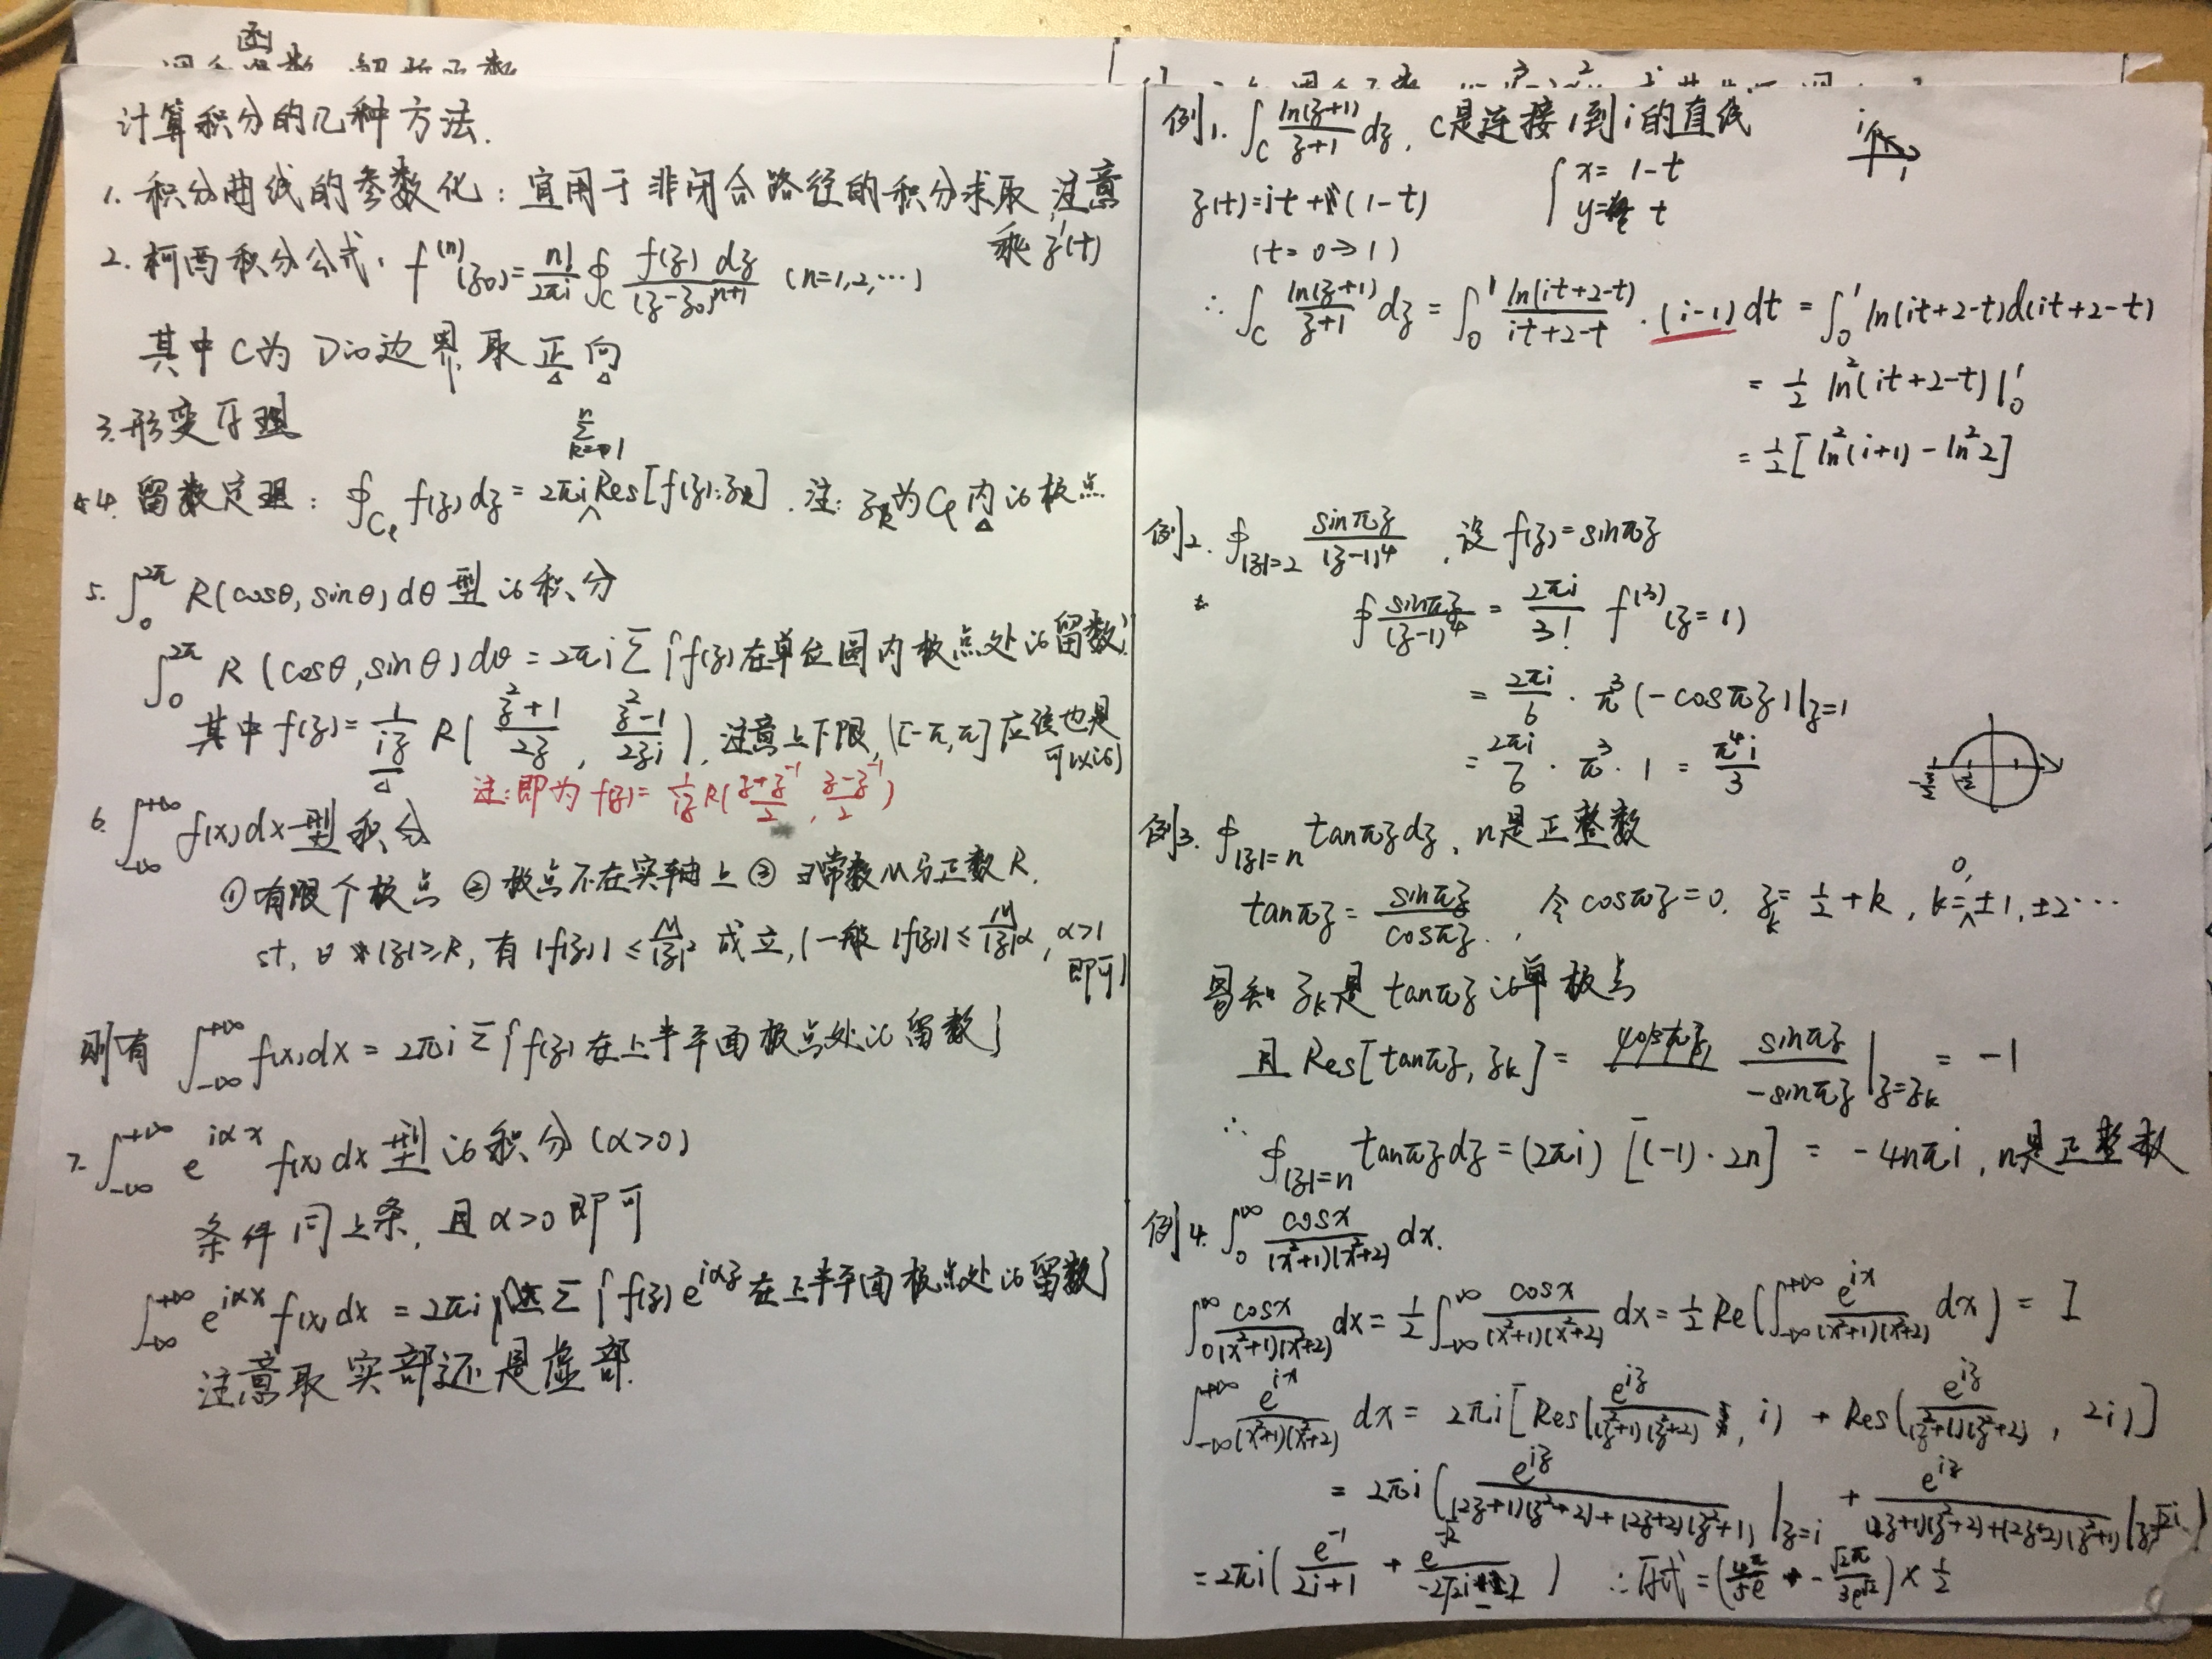 计算积分的几种方法.
1. 积分曲线的参数化：宜用于非闭合路径的积分求取，注意
乘 z'(t)
2. 柯西积分公式. f^(n)(z₀) = n!/(2πi) ∮_C f(z) dz/(z-z₀)^(n+1) (n=1,2,…)
其中C为D的边界,取正向
3. 形变原理
4. 留数定理：∮_Cₑ f(z)dz = 2πi Σ_{k=1}^{n} Res[f(z);z_k]. 注：z_k为Cₑ内的极点
5. ∫₀^{2π} R(cosθ, sinθ)dθ 型的积分
∫₀^{2π} R(cosθ, sinθ)dθ = 2πi Σ{f(z)在单位圆内极点处的留数}
其中 f(z) = 1/(iz) R( (z²+1)/(2z), (z²-1)/(2zi) ), 注意上下限, ([-π,π]应该也是
可以的)
注：即为 f(z) = 1/(iz) R( (z+z⁻¹)/2, (z-z⁻¹)/2 )
6. ∫_{-∞}^{+∞} f(x)dx 型积分
①有限个极点 ②极点不在实轴上 ③ ∃常数M与正数R.
st, ∀ |z|≥R, 有 |f(z)| ≤ M/|z|² 成立, (一般 |f(z)| ≤ M/|z|^α, α>1
即可)
则有 ∫_{-∞}^{+∞} f(x)dx = 2πi Σ{f(z)在上半平面极点处的留数}
7. ∫_{-∞}^{+∞} e^{iαx} f(x)dx 型的积分 (α>0)
条件同上条, 且α>0即可
∫_{-∞}^{+∞} e^{iαx} f(x)dx = 2πi Σ{f(z)e^{iαz}在上半平面极点处的留数}
注意取实部还是虚部.
例1. ∫_C ln(z+1)/(z+1) dz, C是连接1到i的直线
i
1
z(t)=it+(1-t)
{ x=1-t
y=t
(t=0→1)
∴ ∫_C ln(z+1)/(z+1) dz = ∫₀¹ ln(it+2-t)/(it+2-t) · (i-1)dt = ∫₀¹ ln(it+2-t)d(it+2-t)
= 1/2 ln²(it+2-t)|₀¹
= 1/2[ln²(i+1) - ln²2]
例2. ∮_{|z|=2} sinπz/(z-1)⁴, 设 f(z)=sinπz
∮ sinπz/(z-1)⁴ = 2πi/3! f^(3)(z=1)
= 2πi/6 · π³(-cosπz)|_{z=1}
= 2πi/6 · π³ · 1 = π⁴i/3
例3. ∮_{|z|=n} tanπz dz, n是正整数
tanπz = sinπz/cosπz, 令 cosπz=0, z_k = 1/2 + k, k=0,±1,±2…
易知 z_k是 tanπz 的单极点
且 Res[tanπz, z_k] = sinπz/(-sinπz)|_{z=z_k} = -1
∴ ∮_{|z|=n} tanπz dz = (2πi)[(-1)·2n] = -4nπi, n是正整数
例4. ∫₀^∞ cosx/((x²+1)(x²+2)) dx.
∫₀^∞ cosx/((x²+1)(x²+2)) dx = 1/2 ∫_{-∞}^∞ cosx/((x²+1)(x²+2)) dx = 1/2 Re(∫_{-∞}^{+∞} e^{ix}/((x²+1)(x²+2)) dx) = I
∫_{-∞}^{+∞} e^{ix}/((x²+1)(x²+2)) dx = 2πi[Res(e^{iz}/((z²+1)(z²+2)), i) + Res(e^{iz}/((z²+1)(z²+2)), 2i)]
= 2πi( e^{iz}/((2z+1)(z²+2)+(2z+2)(z²+1))|_{z=i} + e^{iz}/((2z+1)(z²+2)+(2z+2)(z²+1))|_{z=√2i} )
= 2πi( e⁻¹/(2i+1) + ) ∴原式 = (4π/5e - √2π/3e^√2) × 1/2